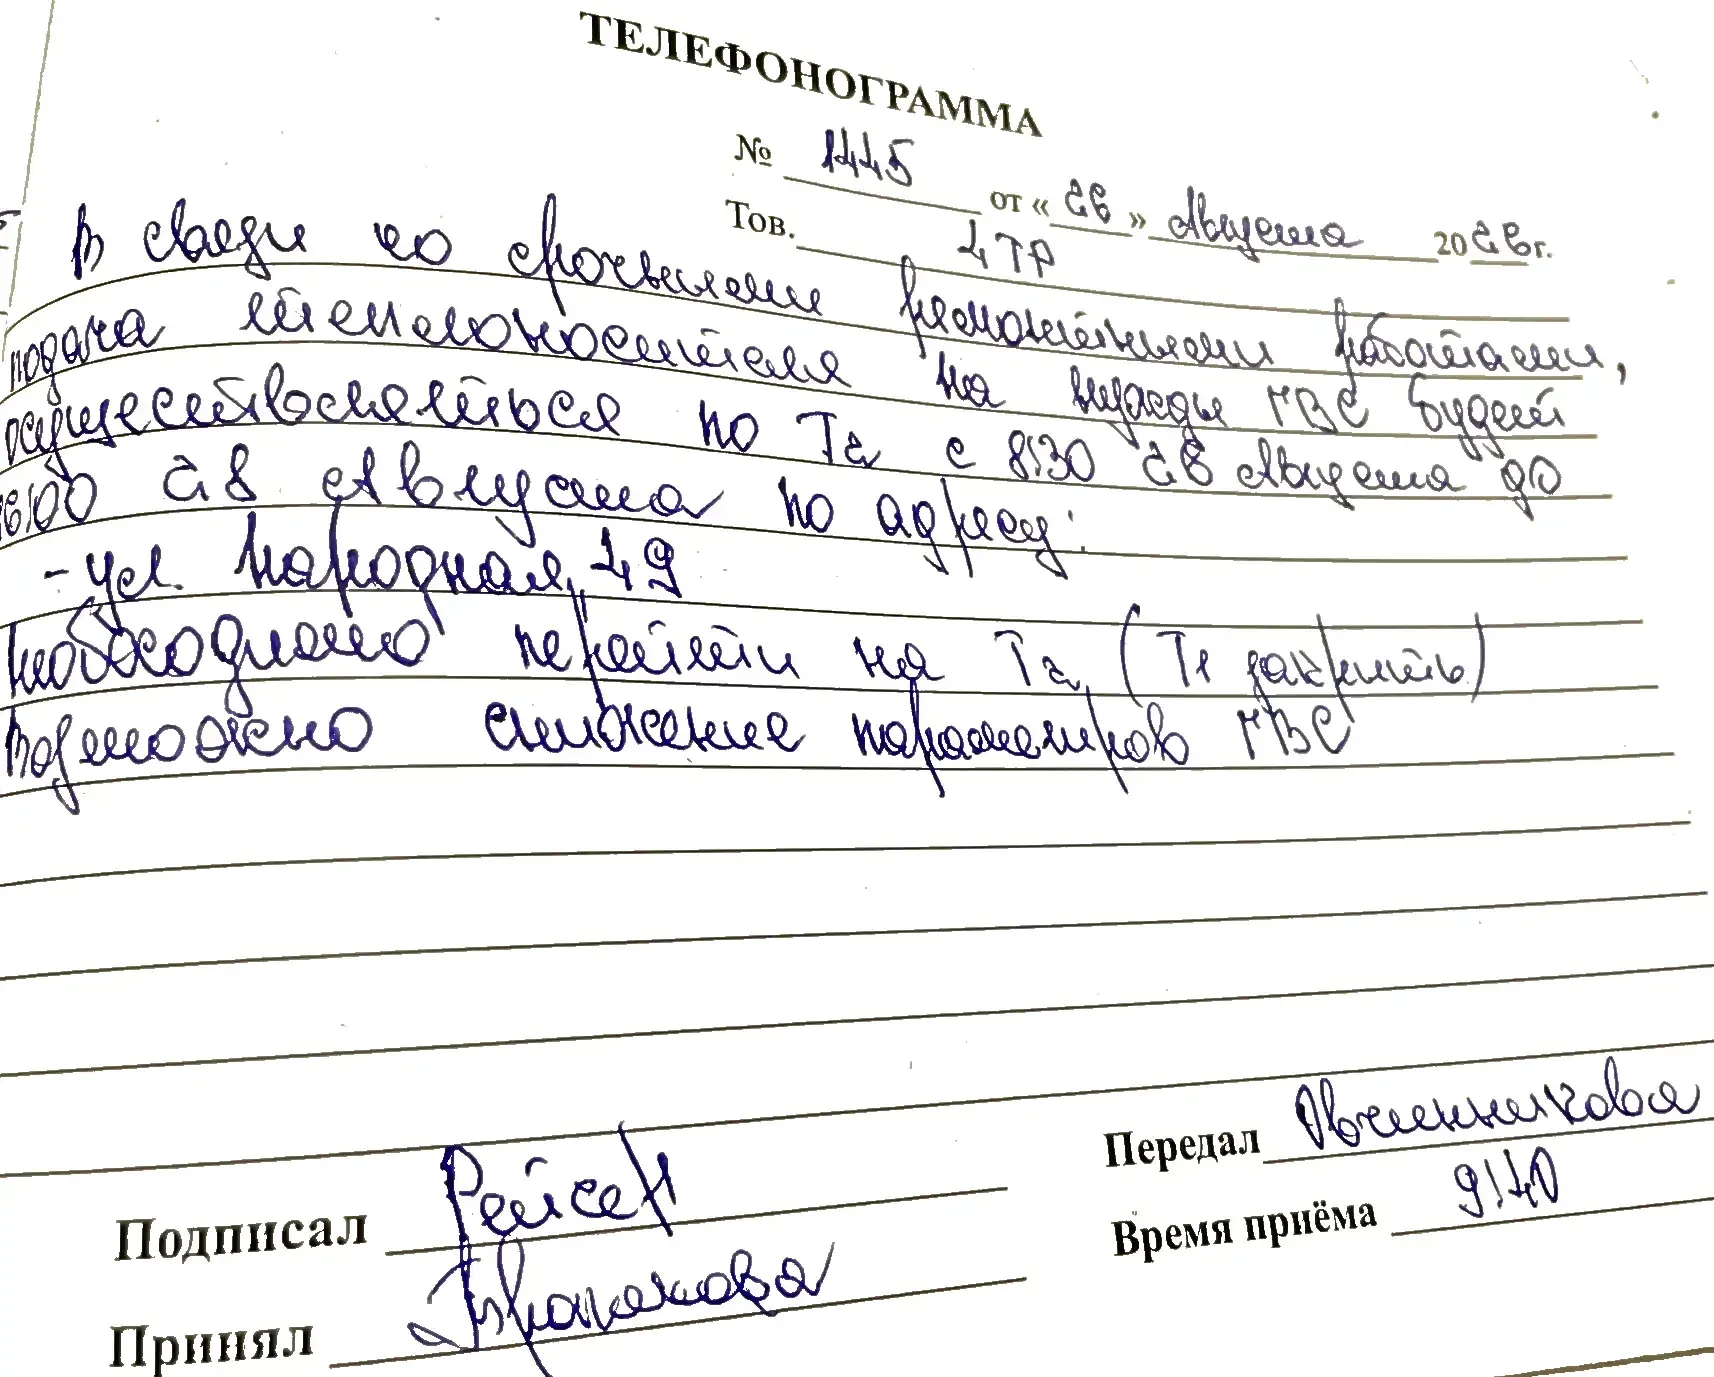 ТЕЛЕФОНОГРАММА
№ 1445 от « 26 » Августа 2026 г.
Тов. 4 ТР
В связи со срочными ремонтными работами,
подача теплоносителя на нужды ГВС будет
осуществляться по Т2 с 8:30 26 Августа до
16:00 28 Августа по адресу:
- ул. Народная, 49
Необходимо перейти на Т2, (Т1 закрыть)
Возможно снижение параметров ГВС
Передал Овчинникова
Подписал Рейсен
Время приёма 9:40
Принял